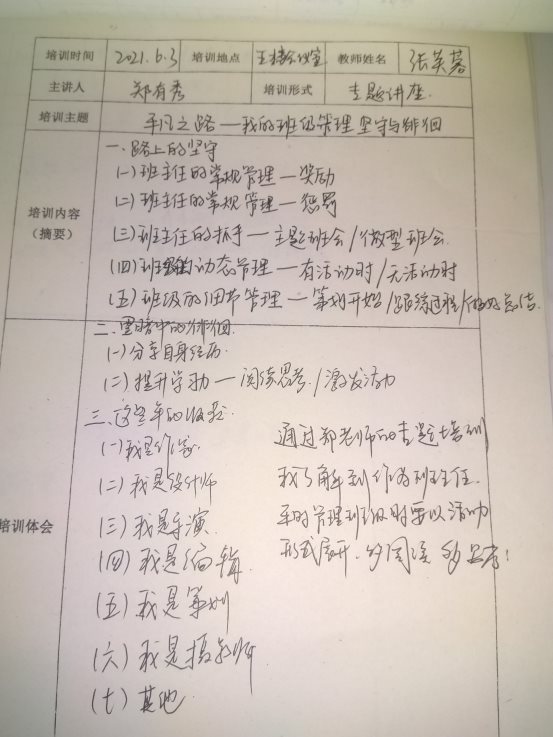 培训时间 2021.6.3 培训地点 会议室 教师姓名 张英慕
主讲人 郑有秀 培训形式 专题讲座.
培训主题 平凡之路—我的班级管理坚守与徘徊
培训内容
(摘要)
一、路上的坚守
(一)班主任的常规管理—奖励
(二)班主任的常规管理—惩罚
(三)班主任的抓手—主题班会/微型班会
(四)班级的动态管理—有活动时/无活动时
(五)班级的细节管理—策划开始/跟踪过程/做好总结.
二.黑暗中的徘徊
(一)分享自身经历.
(二)提升学习力—阅读思考/激发活动
培训体会
三、这些年的收获.
(一)我是作家
(二)我是设计师
(三)我是导演
(四)我是编辑
(五)我是策划
(六)我是摄影师
(七)其他
通过郑老师的专题培训
我了解到作为班主任.
平时管理班级时要以活动
形式展开.多阅读多思考!